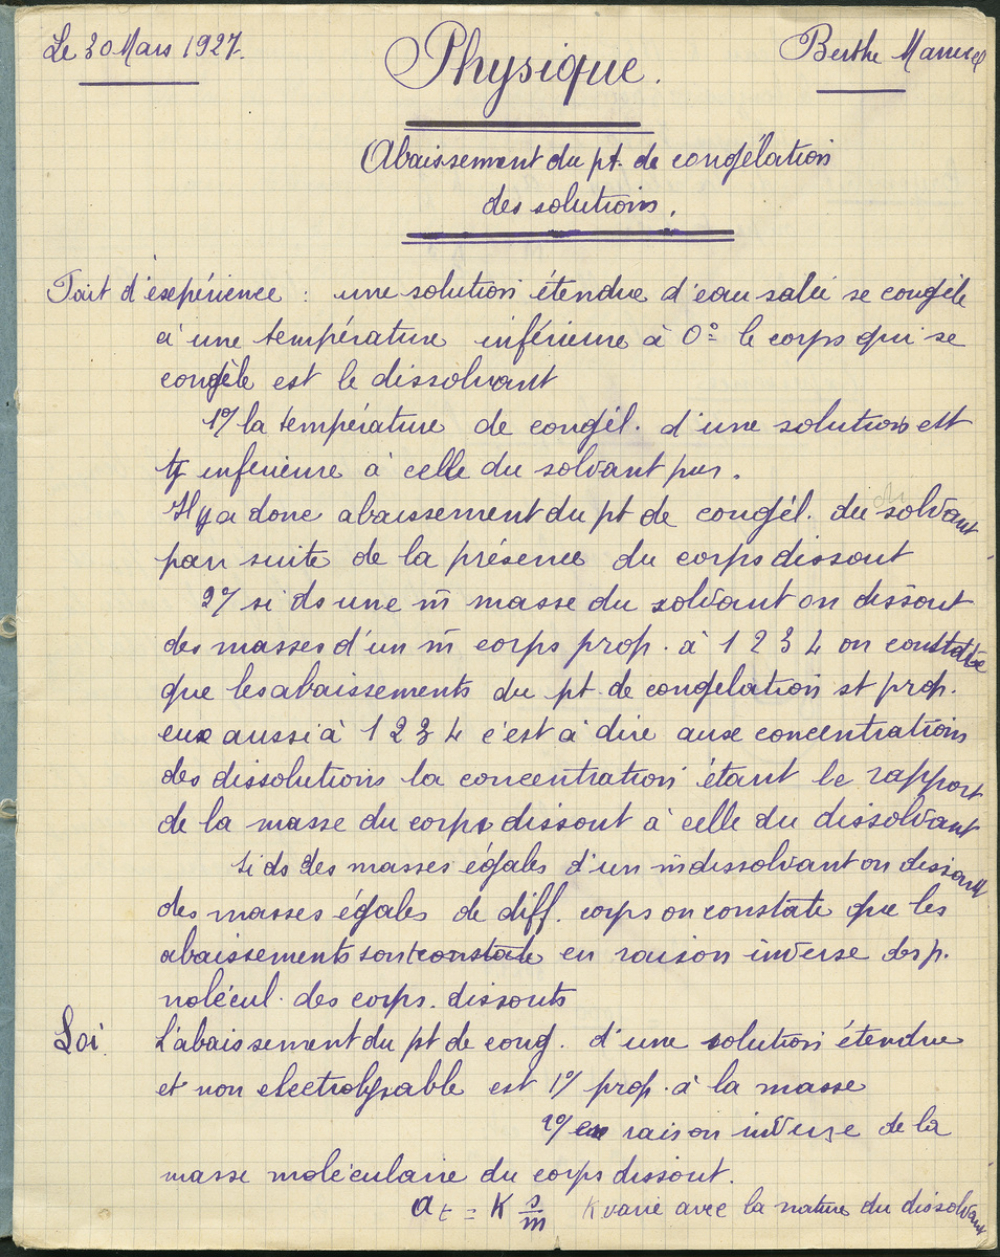 Le 30 Mars 1927.
Physique.
Berthe
Abaissement du pt. de congélation
des solutions.
Fait d'expérience : une solution étendue d'eau salée se congèle
à une température inférieure à 0° le corps qui se
congèle est le dissolvant
1°/ la température de congél. d'une solution est
tj inferieure à celle du solvant pur.
Il y a donc abaissement du pt de congél. du solvant
par suite de la présence du corps dissout
2°/ si ds une m̄ masse du solvant on dissout
des masses d'un m̄ corps prop. à 1 2 3 4 on constate
que les abaissements du pt. de congelation st prop.
eux aussi à 1 2 3 4 c'est à dire aux concentrations
des dissolutions la concentration étant le rapport
de la masse du corps dissout à celle du dissolvant
si ds des masses égales d'un m̄ dissolvant on dissout
des masses égales de diff. corps on constate que les
abaissements sont constate en raison inverse des p.
molécul. des corps. dissouts
Loi. L'abaissement du pt de cong. d'une solution étendue
et non electrolysable est 1°/ prop. à la masse
2°/ en raison inverse de la
masse moléculaire du corps dissout.
a t = K s/m K varie avec la nature du dissolvant